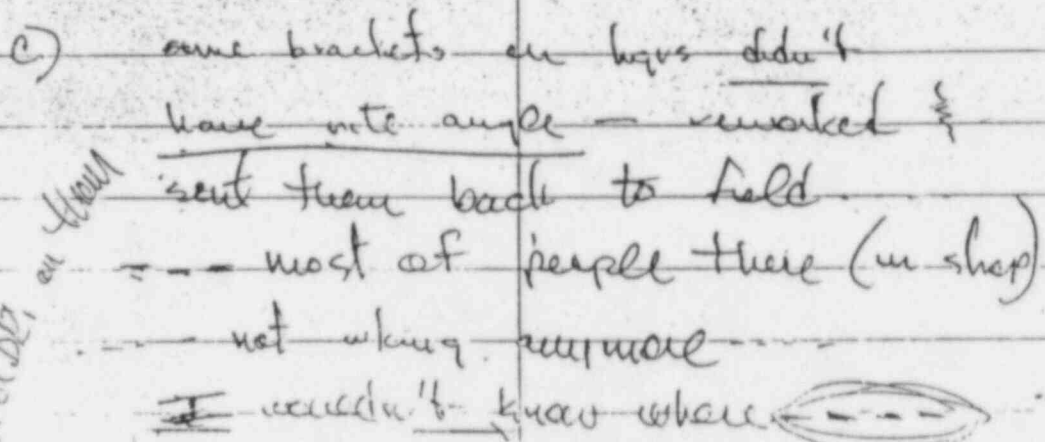 c) some brackets on hgrs didn't
have rite angle — reworked &
sent them back to field.
--- most of people there (in shop)
--- not wking anymore
I wouldn't know where - - - -
on them